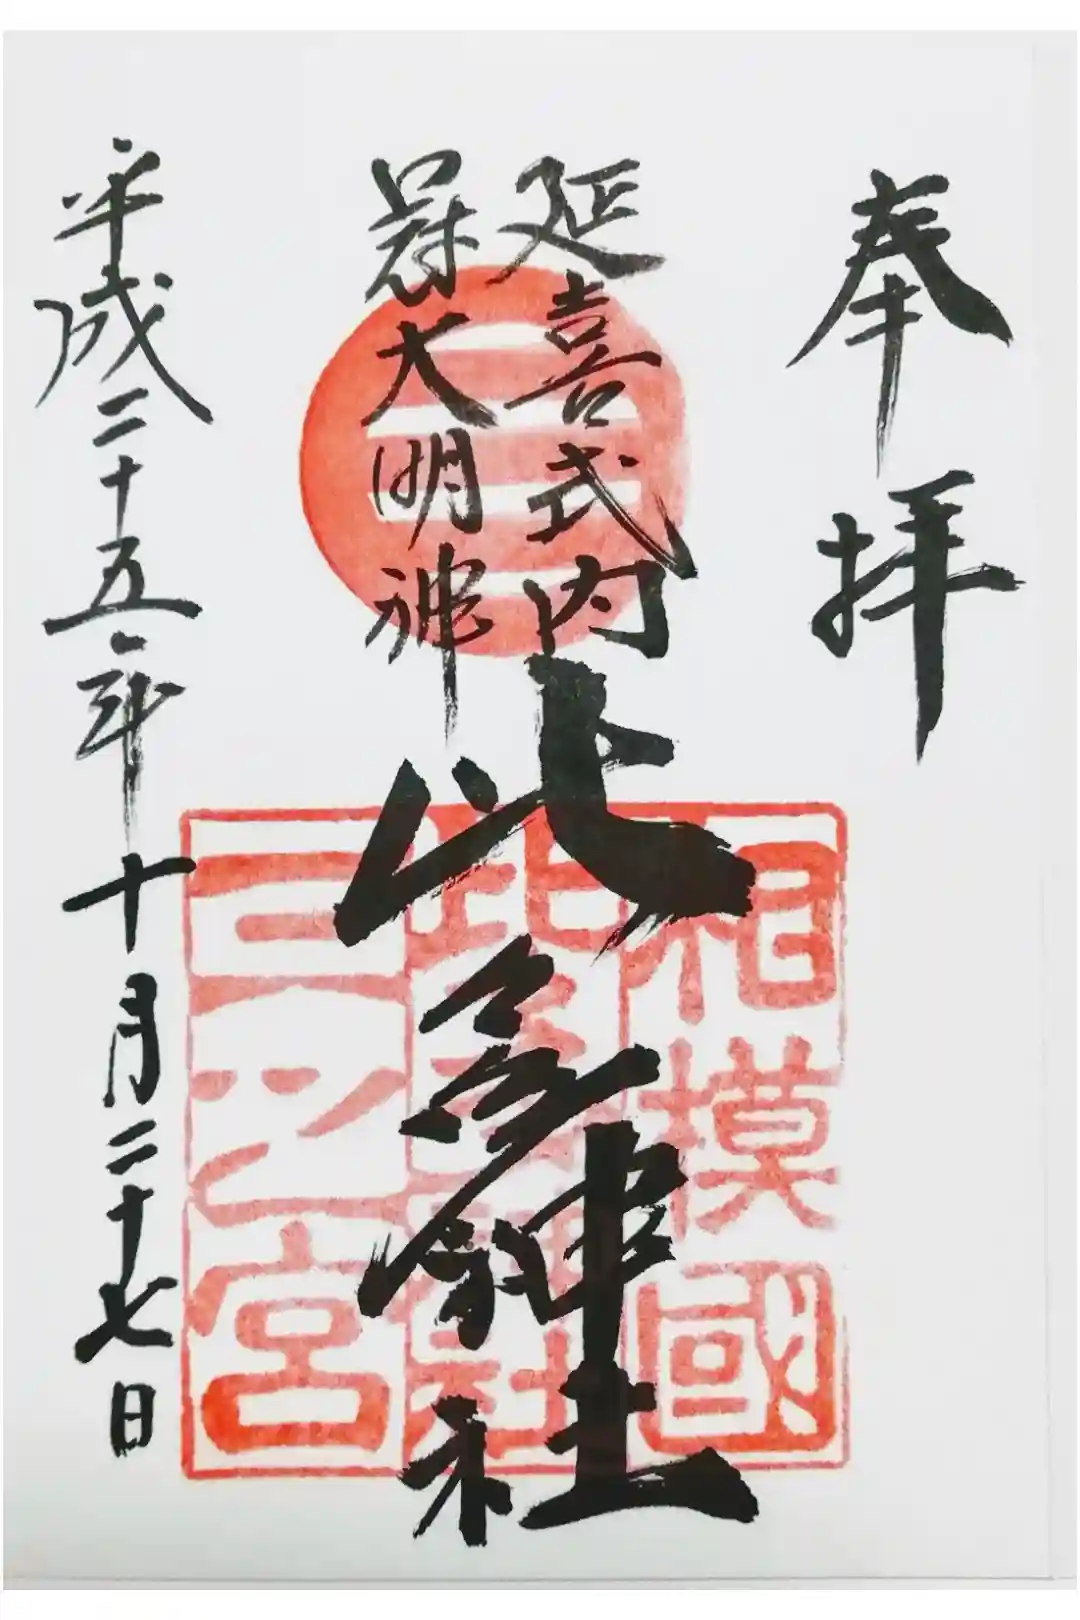 奉拝
延喜式内
冠大明神
比々多神社
平成二十五年十月二十七日
相模國
比々多神社
三之宮